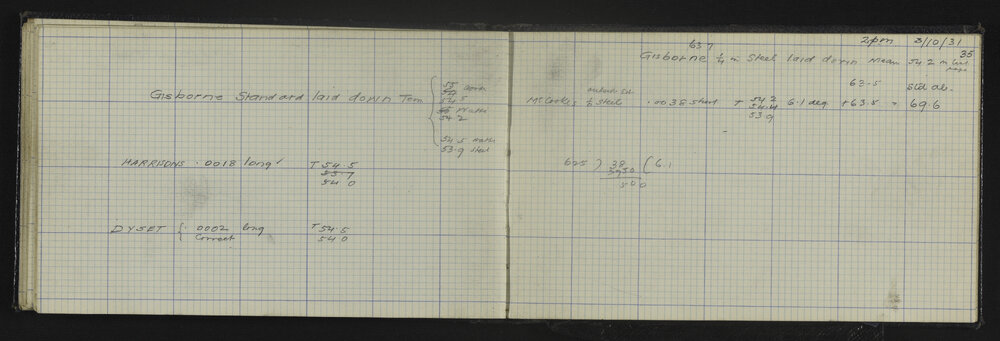 Gisborne Standard laid down Tem
55
54
54.5
54 2
54.5
53.9 Steel
HARRISONS .0018 long T 54.5
53.7
54 0
DYSET { .0002 long T 54.5
Correct 54 0
2pm 3/10/31
35
63 7
Gisborne ¼ in Steel laid down Mean 54 2
63.5 Std at.
McCook's ¼ Steel .0038 Short + 54 2 6.1 deg. +63.5 = 69.6
54.4
53.9
625 ) 38 ( 6.1
3750
500